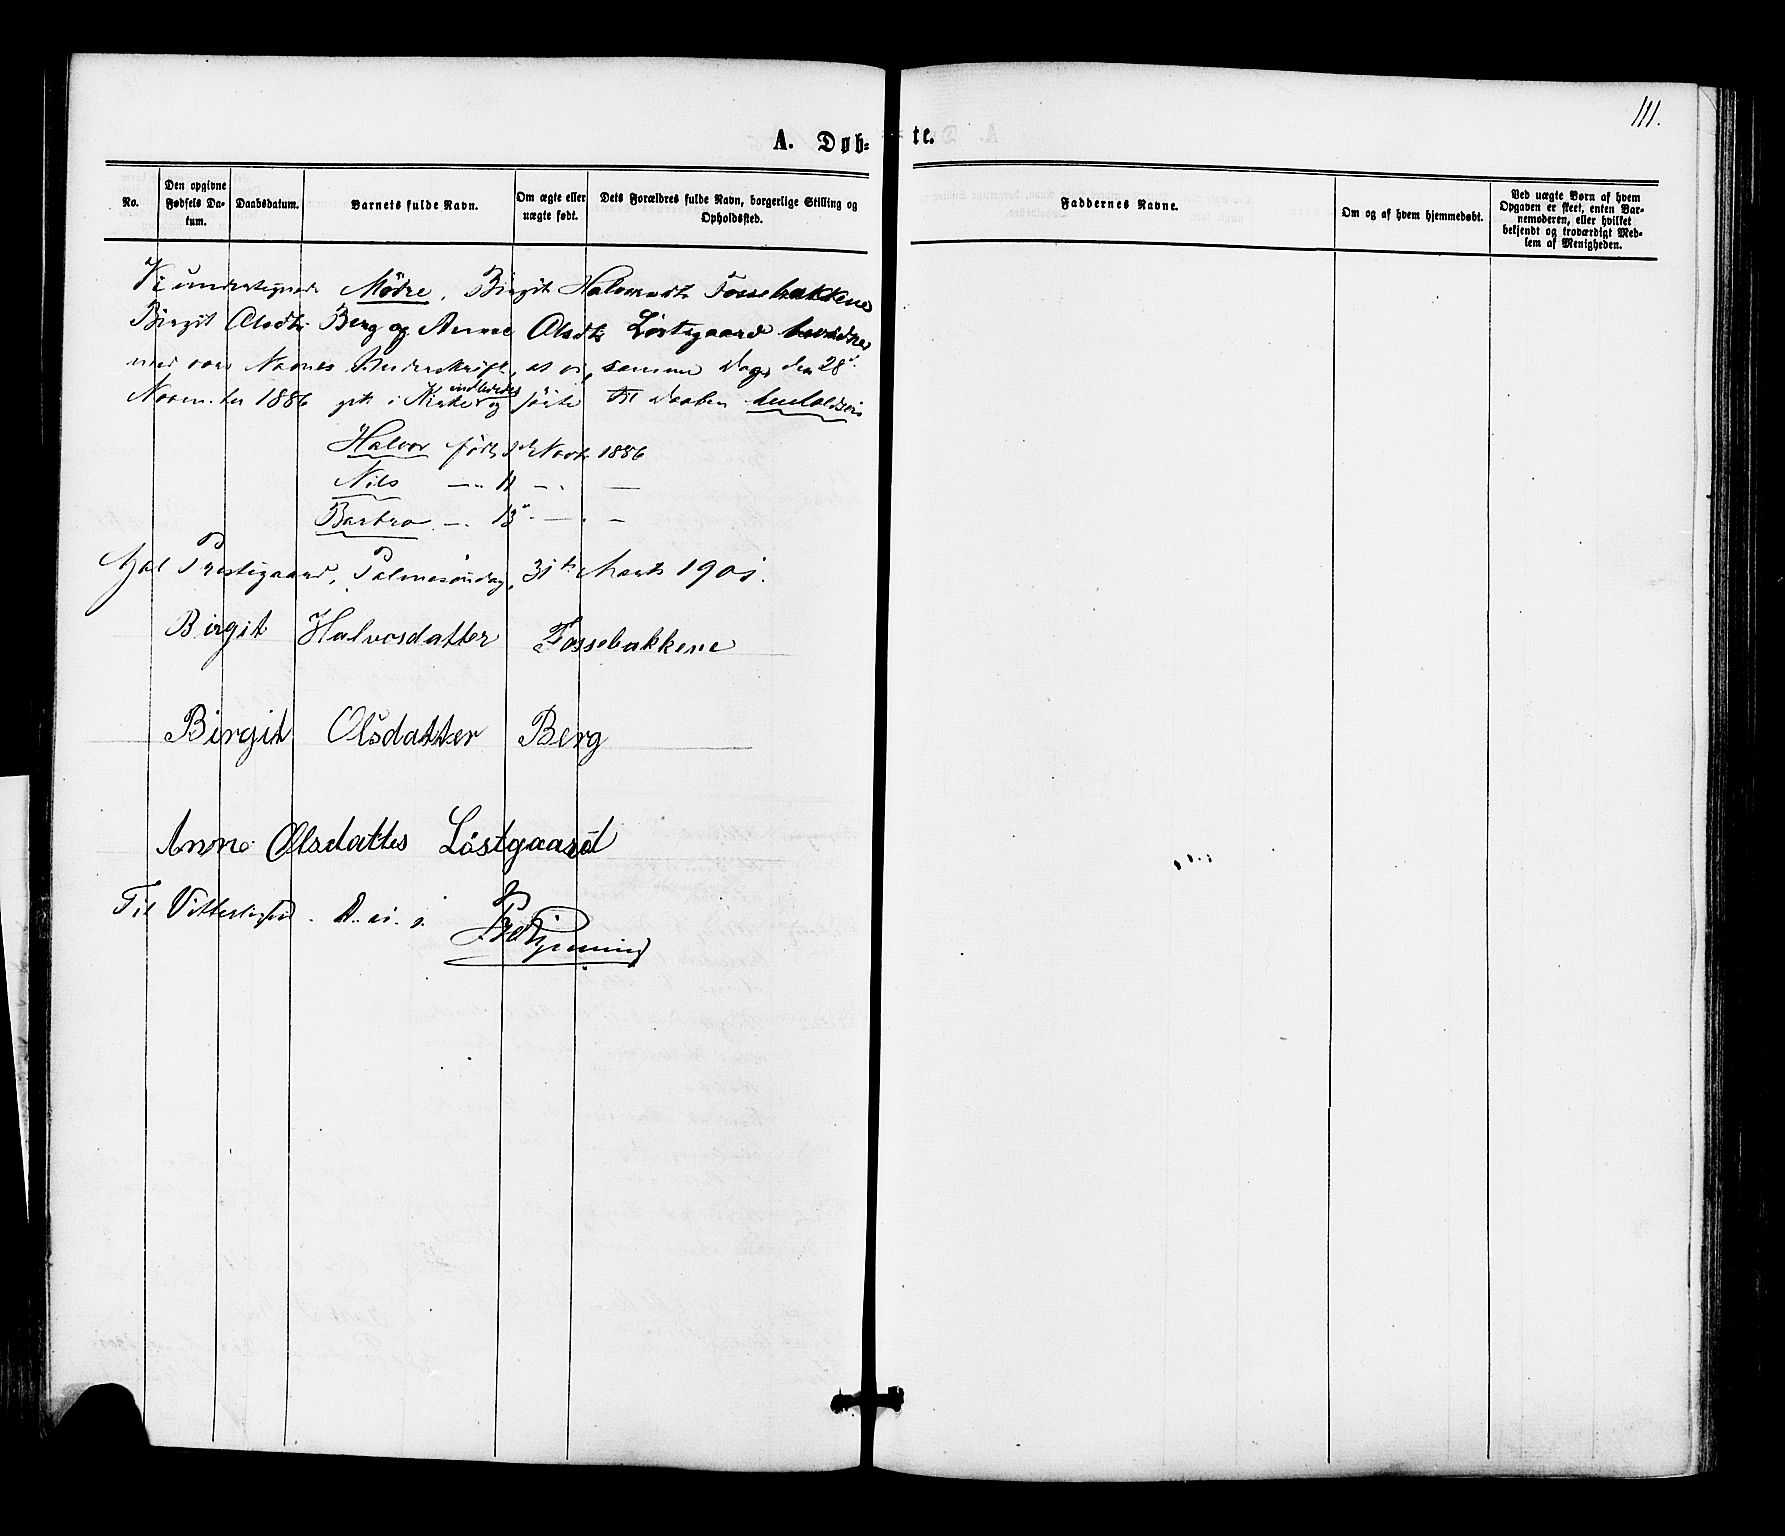 111.
A. Døb-te.
No.
Den opgivne Fødsels Da-tum.
Daabsdatum.
Barnets fulde Navn.
Om ægte eller uægte født.
Dets Forældres fulde Navn, borgerlige Stilling og Opholdssted.
Faddernes Navne.
Om og af hvem hjemmedøbt.
Ved uægte Børn af hvem Opgaven er skeet, enten Bar-nemoderen, eller hvilket bekjendt og troværdigt Med-lem af Menigheden.
Vi undertegnede Mødre, Birgit Halvorsdtr Fossebakkene
Birgit Olsdtr Berg og Anne Olsdtr Løstegaard bevidner
med vor Navnes Underskrift, at vi, samme Dag, den 28de
November 1886 gik i Kirke indlededes og førte til Daaben
Halvor født Novbr 1886
Nils — 11 — —
Barbro — 13 — —
Aal Prestegaard, Palmesøndag, 31te Marts 1901.
Birgit Halvosdatter Fossebakkene
Birgit Olsdatter Berg
Anne Olsdatter Løstgaard
Til Vitterlighed